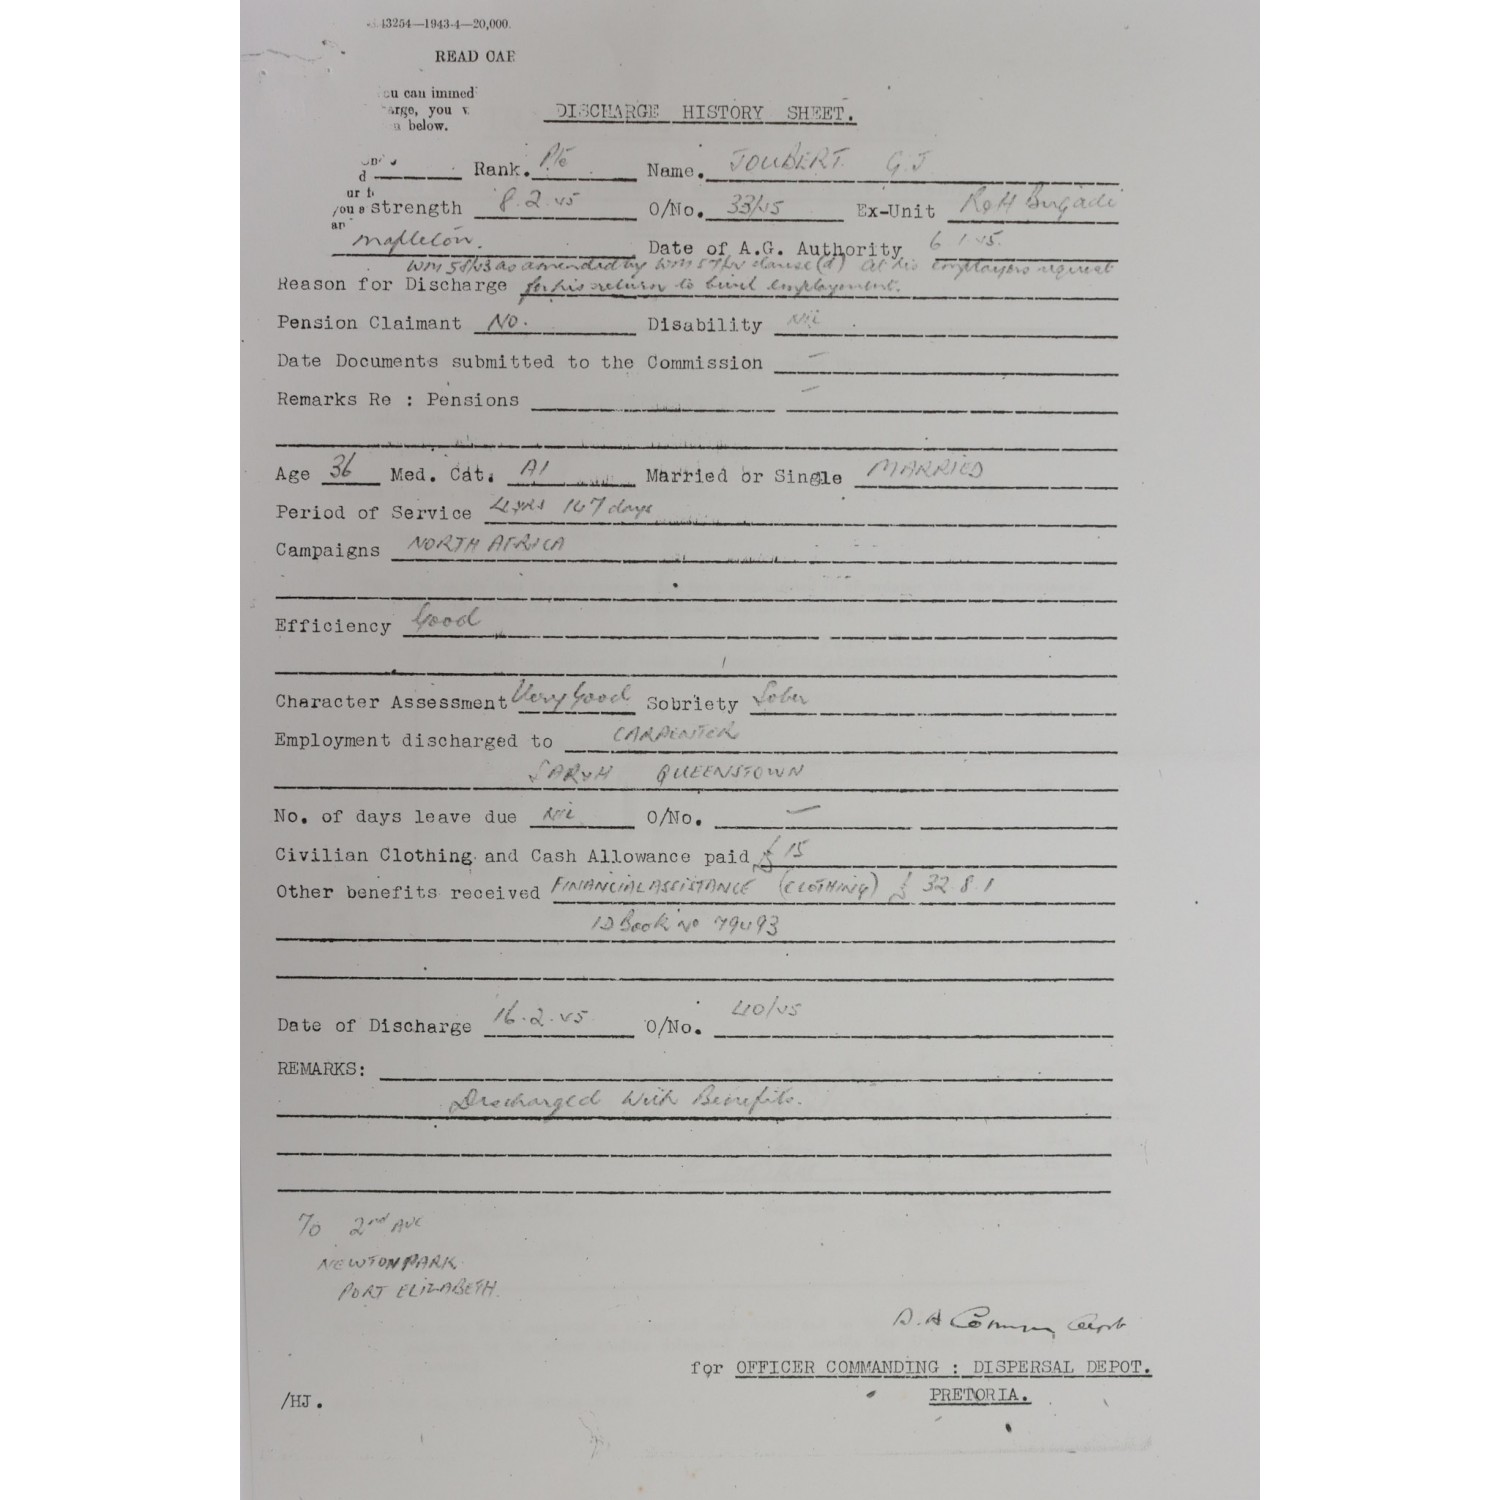 13254—1943-4—20,000.
READ CAR
ou can immed
arge, you
below.
DISCHARGE HISTORY SHEET.
Rank. Pte Name. JOUBERT G.J
strength 8.2.45 O/No. 33/45 Ex-Unit R&H Brigade
Mapleton. Date of A.G. Authority 6.1.45.
WM 58/43 as amended by WM 57/44 clause (d) At his employers request
Reason for Discharge for his return to civil employment.
Pension Claimant No. Disability Nil
Date Documents submitted to the Commission —
Remarks Re : Pensions —
Age 36 Med. Cat. A1 Married or Single MARRIED
Period of Service 4 yrs 147 days
Campaigns NORTH AFRICA
Efficiency Good
Character Assessment Very Good Sobriety Sober
Employment discharged to CARPENTER
SAR&H QUEENSTOWN
No. of days leave due Nil O/No. —
Civilian Clothing and Cash Allowance paid £15
Other benefits received FINANCIAL ASSISTANCE (CLOTHING) £32.8.1
ID Book No 79493
Date of Discharge 16.2.45 O/No. 40/45
REMARKS:
Discharged With Benefits.
2nd AVE
NEWTON PARK
PORT ELIZABETH.
for OFFICER COMMANDING : DISPERSAL DEPOT.
PRETORIA.
/HJ.